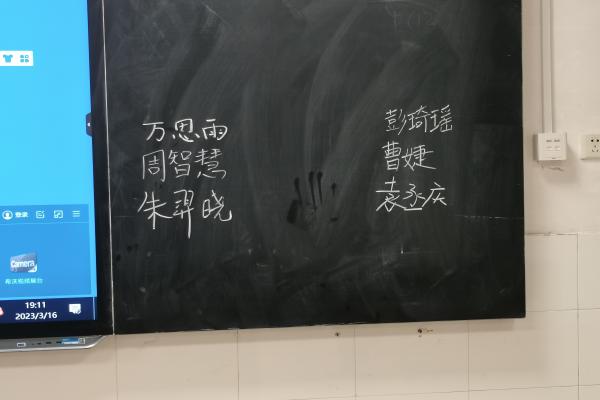 万思雨
周智慧
朱羿晓
彭琦瑶
曹婕
袁丞庆
登录
Camera
希沃视频展台
19:11
2023/3/16